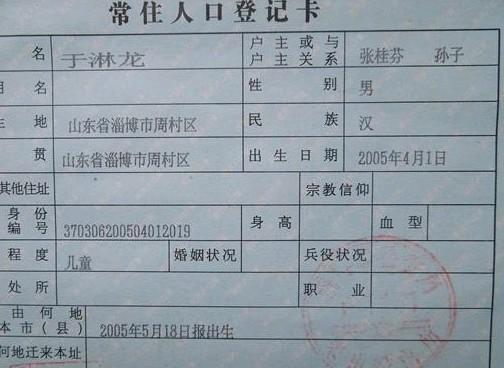 常住人口登记卡
名 于淋龙 户主或与户主关系 张桂芬 孙子
用名 性别 男
生地 山东省淄博市周村区 民族 汉
贯 山东省淄博市周村区 出生日期 2005年4月1日
其他住址 宗教信仰
身份编号 370306200504012019 身高 血型
程度 儿童 婚姻状况 兵役状况
处所 职业
由何地
本市(县) 2005年5月18日报出生
何地迁来本址